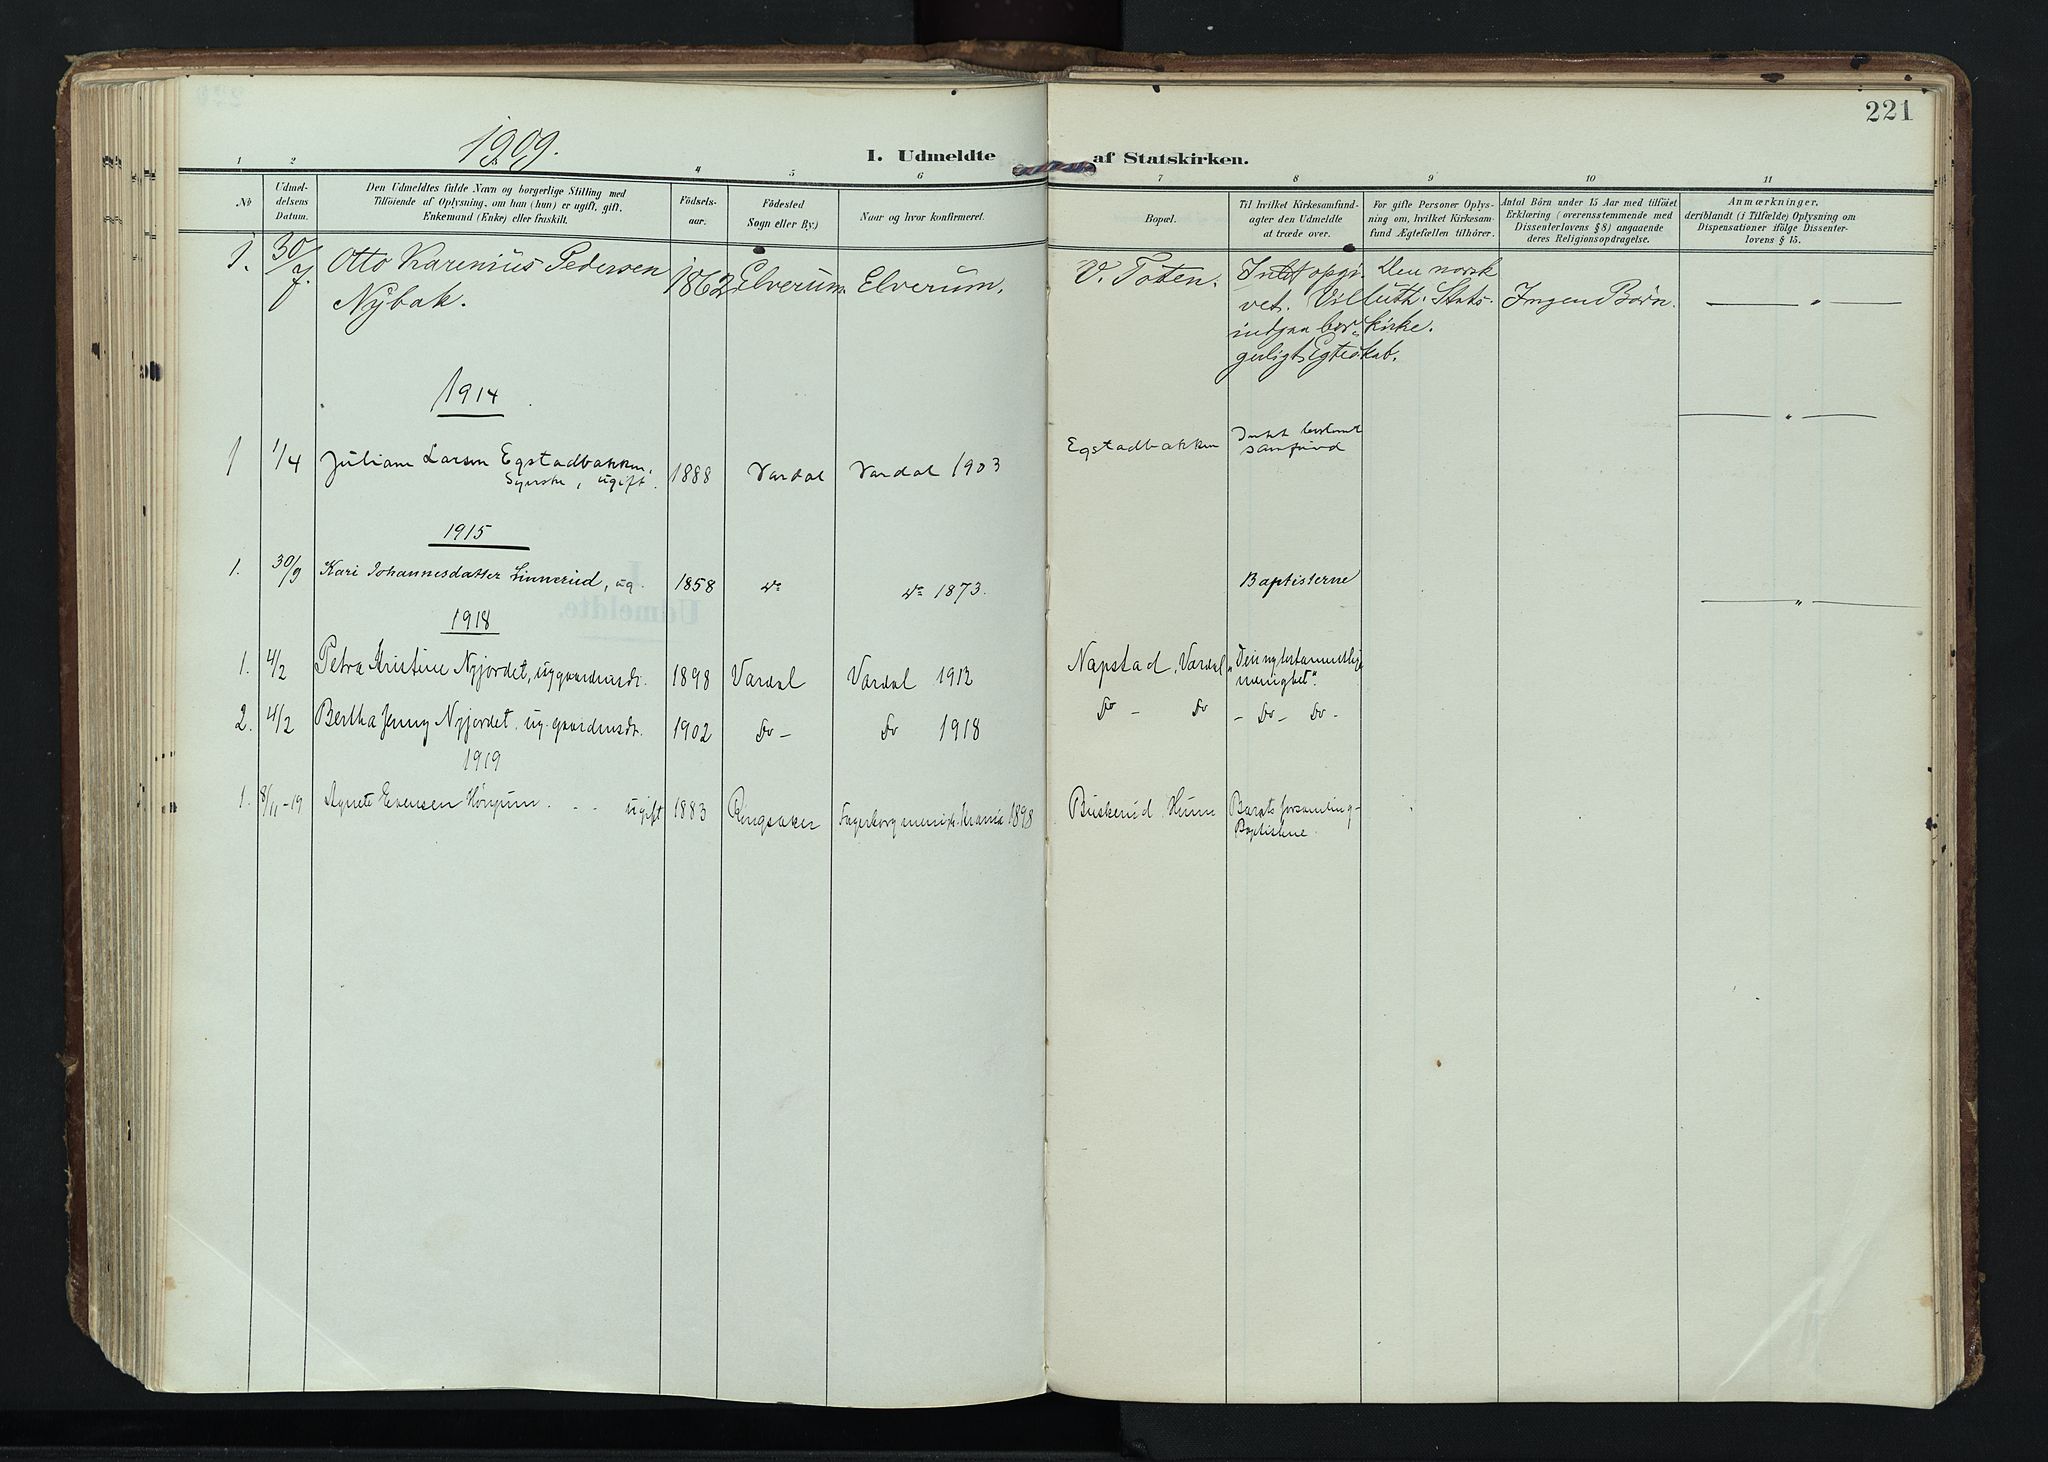 221
1909.
I. Udmeldte af Statskirken.
1 2 4 5 6 7 8 9 10 11
No
Udmeldelsens Datum.
Den Udmeldtes fulde Navn og borgerlige Stilling med
Tilföiende af Oplysning, om han (hun) er ugift, gift,
Enkemand (Enke) eller fraskilt.
Födselsaar.
Födested
Sogn eller By.)
Naar og hvor konfirmeret.
Bopæl.
Til hvilket Kirkesamfund-
agter den Udmeldte
at træde over.
For gifte Personer Oplys-
ning om, hvilket Kirkesam-
fund Ægtefællen tilhörer.
Antal Börn under 15 Aar med tilföiet
Erklæring (overensstemmende med
Dissenterlovens § 8) angaaende
deres Religionsopdragelse.
Anmærkninger,
deriblandt (i Tilfælde) Oplysning om
Dispensationer ifölge Dissenter-
lovens § 15.
1. 30/7. Otto Karenius Pedersen Nybak. 1862 Elverum. Elverum. V. Toten. Intet opgivet. Vil indgaa borgerligt Egteskab. Den norsk luth. Statskirke. Ingen Børn. — " —
1914
1 1/4 Juliane Larsen Egstadbakken, Syerske, ugift. 1888 Vardal Vardal 1903 Egstadbakken Intet bestemt samfund — " —
1915
1. 30/9 Kari Johannesdatter Linnerud, ug. 1858 do do 1873. Baptisterne — " —
1918
1. 4/2 Petra Kristine Nyjordet, ug gaardmdr. 1898 Vardal Vardal 1912 Napstad, Vardal "Den nytestamentlige menighet".
2. 4/2 Bertha Jenny Nyjordet, ug. gaardmdr. 1902 Do - Do 1918 Do - Do - Do - Do -
1919
1. 8/11-19 Agnete Evensen ugift 1883 Ringsaker Fagerborg menigh. Krania 1898 Buskerud Hunn forsamling- Baptistene.